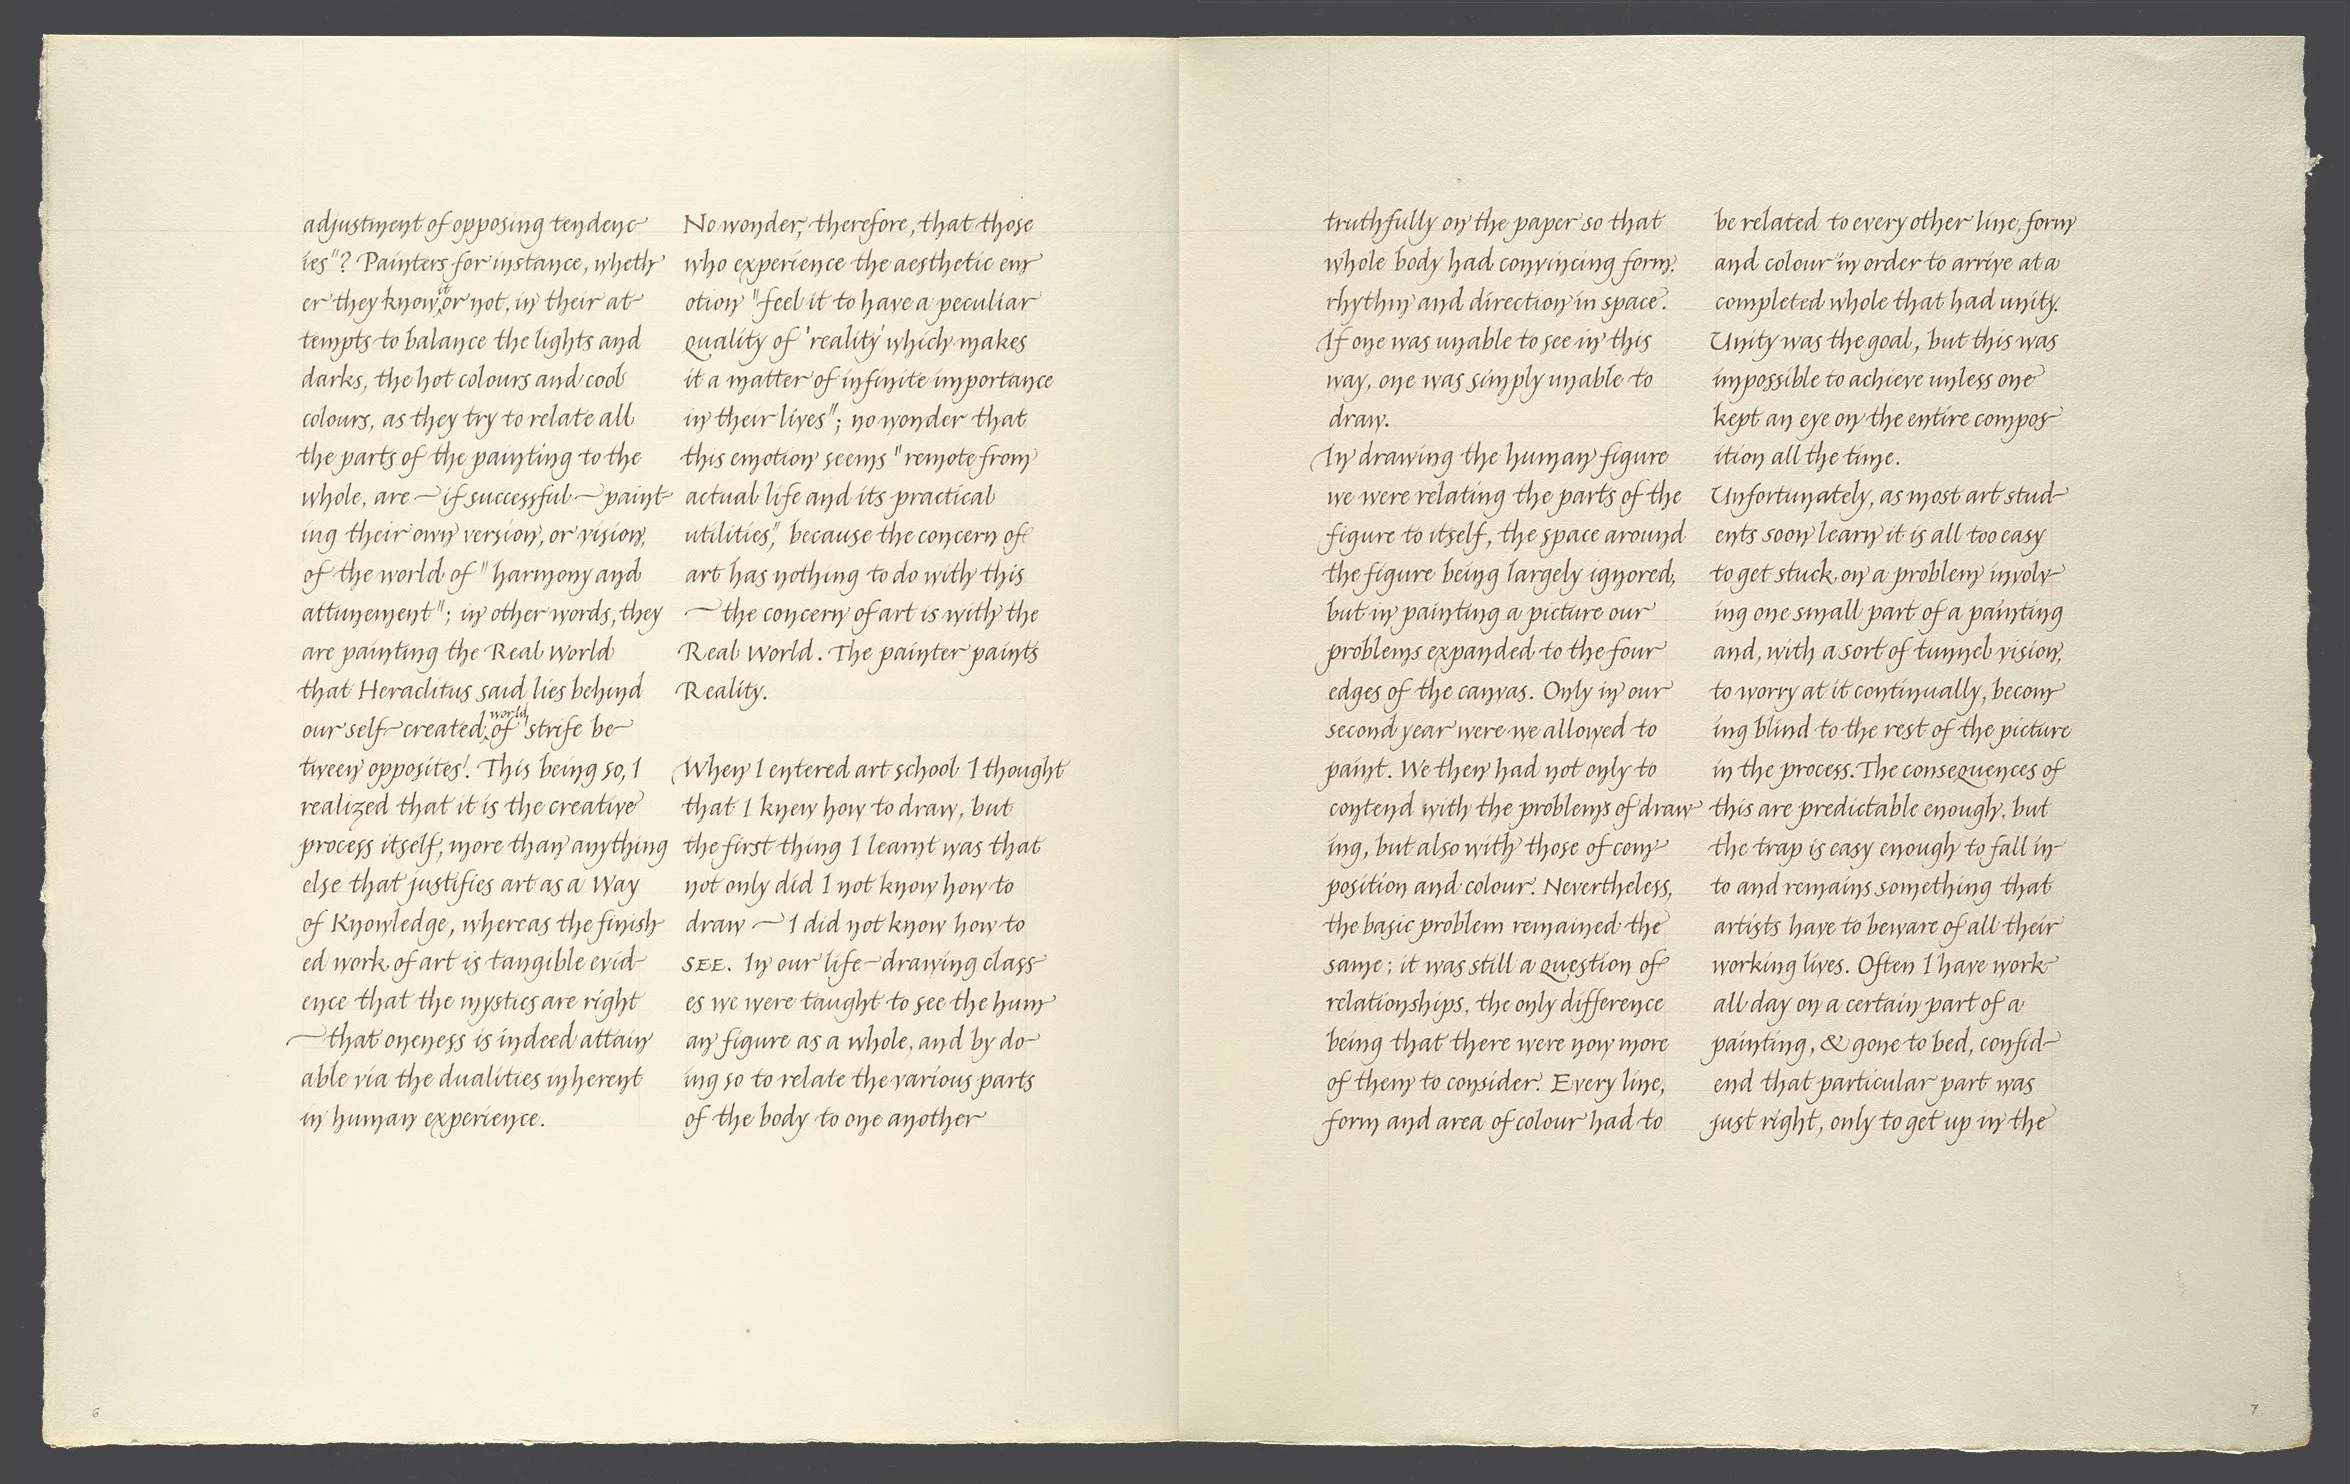 adjustment of opposing tendenc-
ies"? Painters, for instance, wheth-
er they know it or not, in their at-
tempts to balance the lights and
darks, the hot colours and cool
colours, as they try to relate all
the parts of the painting to the
whole, are — if successful — paint-
ing their own version, or vision,
of the world of "harmony and
attunement"; in other words, they
are painting the Real World
that Heraclitus said lies behind
our self-created world of 'strife be-
tween opposites'. This being so, I
realized that it is the creative
process itself, more than anything
else that justifies art as a Way
of Knowledge, whereas the finish-
ed work of art is tangible evid-
ence that the mystics are right
— that oneness is indeed attain-
able via the dualities inherent
in human experience.
No wonder, therefore, that those
who experience the aesthetic em-
otion "feel it to have a peculiar
quality of 'reality' which makes
it a matter of infinite importance
in their lives"; no wonder that
this emotion seems "remote from
actual life and its practical
utilities", because the concern of
art has nothing to do with this
— the concern of art is with the
Real World. The painter paints
Reality.
When I entered art school I thought
that I knew how to draw, but
the first thing I learnt was that
not only did I not know how to
draw — I did not know how to
SEE. In our life-drawing class-
es we were taught to see the hum-
an figure as a whole, and by do-
ing so to relate the various parts
of the body to one another
6
truthfully on the paper so that
whole body had convincing form,
rhythm and direction in space.
If one was unable to see in this
way, one was simply unable to
draw.
In drawing the human figure
we were relating the parts of the
figure to itself, the space around
the figure being largely ignored,
but in painting a picture our
problems expanded to the four
edges of the canvas. Only in our
second year were we allowed to
paint. We then had not only to
contend with the problems of draw-
ing, but also with those of com-
position and colour. Nevertheless,
the basic problem remained the
same; it was still a question of
relationships, the only difference
being that there were now more
of them to consider. Every line,
form and area of colour had to
be related to every other line, form
and colour in order to arrive at a
completed whole that had unity.
Unity was the goal, but this was
impossible to achieve unless one
kept an eye on the entire compos-
ition all the time.
Unfortunately, as most art stud-
ents soon learn it is all too easy
to get stuck on a problem involv-
ing one small part of a painting
and, with a sort of tunnel vision,
to worry at it continually, becom-
ing blind to the rest of the picture
in the process. The consequences of
this are predictable enough, but
the trap is easy enough to fall in-
to and remains something that
artists have to beware of all their
working lives. Often I have work-
all day on a certain part of a
painting, & gone to bed, confid-
end that particular part was
just right, only to get up in the
7